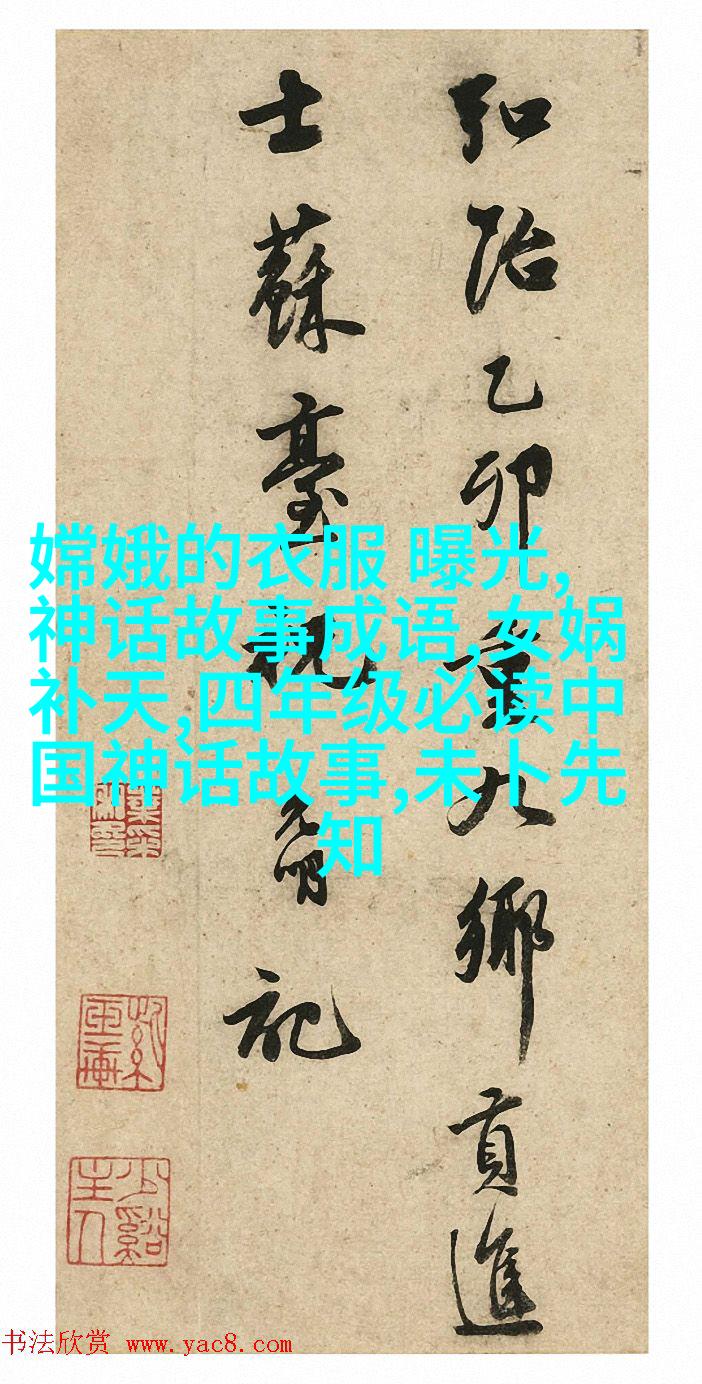 弘治乙卯重九鄉貢進
士蘇臺祝允明記
嫦娥的衣服 曝光,
神话故事成语,女娲
补天,四年级必读中
国神话故事,未卜先
知
少谿主人
书法欣赏 www.yac8.com